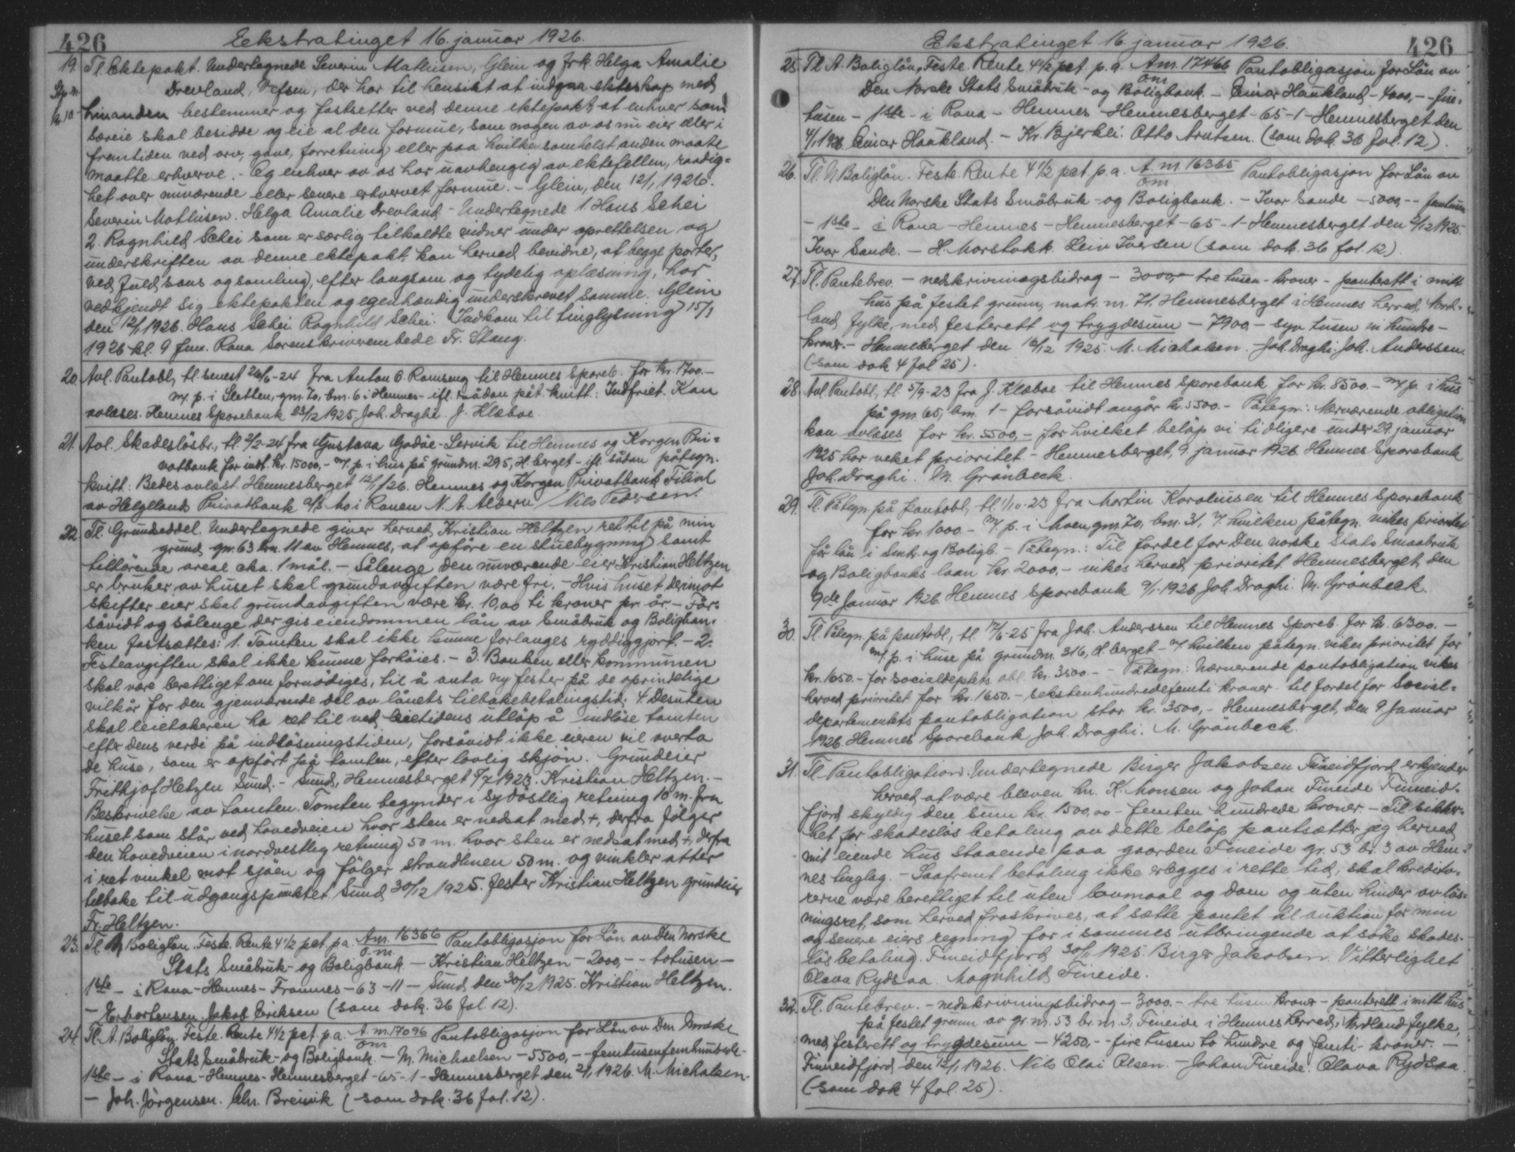 426 Ekstratinget 16. januar 1926.
19. Tl. Ektepakt. Undertegnede Severin Mathisen, Glein og frk. Helga Amalie
Drevland, Vefsen, der har til hensikt at indgaa ekteskap med
hinanden bestemmer og fastsetter ved denne ektepakt at enhver som
særeie skal besidde og eie al den formue, som nogen av os nu eier eller i
fremtiden ved arv, gave, forretning eller paa hvilkensomhelst anden maate
maatte erhverve. - Og enhver av os har uavhengig av ektefellen, raadig-
het over nuværende eller senere erhvervet formue. - Glein, den 12/1 1926.
Severin Mathisen. Helga Amalie Drevland - Undertegnede 1 Hans Schei
2. Ragnhild Schei som er særlig tilkaldte vidner under oprettelsen og
underskriften av denne ektepakt, kan herved bevidne, at begge parter,
ved fuld sans og samling, efter langsom og tydelig oplæsning, har
vedkjendt sig ektepakten og egenhændig underskrevet samme. Glein
den 12/1 1926. Hans Schei Ragnhild Schei. Indkom til tinglysning 15/1
1926 kl. 9 fm. Rana Sorenskriverembede Fr. Stang.
20. Avl. Pantobl. tl. senest 26/6-24 fra Anton B. Ramseng til Hemnes Spareb. for kr. 1700.-
m/ p. i Sletten, gnr. 70, bnr. 6 i Hemnes - ifl. sådan påt. kvitt: Indfriet. Kan
avlæses. Hemnes Sparebank 23/12 1925 Joh. Draghi. J. Klæboe
21. Avl. Skadesløsbr., tl. 9/2-24 fra Gustava Godie-Servik til Hemnes og Korgen Pri-
vatbank for indt. kr. 15000,- m/ p. i hus på grundnr. 295, H.berget - ifl. sådan påtegn.
kvitt: Bedes avlæst Hemnesberget 12/1 26. Hemnes og Korgen Privatbank Filial
av Helgeland Privatbank A/S Mo i Ranen N. A. Aldern / Nils Pedersen.
22. Tl. Grundseddel. Undertegnede giver herved Kristian Heltzen ret til på min
grund, gnr. 63 bnr. 11 av Hemnes, at opføre en stuebygning samt
tilhørende areal cka. 1 mål. - Sålenge den nuværende eier Kristian Heltzen
er bruker av huset skal grundavgiften være fri. - Hvis huset derimot
skifter eier skal grundavgiften være kr. 10,00 ti kroner pr. år. - For-
såvidt og sålenge der gis eiendommen lån av Småbruk og Boligban-
ken fastsættes: 1. Tomten skal ikke kunne forlanges ryddiggjort - 2.
Festeavgiften skal ikke kunne forhøies. - 3. Banken eller kommunen
skal være berettiget om fornødiges, til å anta ny fester på de oprindelige
vilkår for den gjenværende del av lånets tilbakebetalingstid. 4. Desuten
skal leietakeren ha ret til ved leietidens utløp å indløse tomten
efter dens verdi på indløsningstiden, forsåvidt ikke eieren vil overta
de huse, som er opført på tomten, efter lovlig skjøn. Grundeier
Fridtjof Heltzen Sund. - Sund, Hemnesberget 9/7 1923. Kristian Heltzen. -
Beskrivelse av tomten. Tomten begynder i sydøstlig retning 10 m. fra
huset som står, ved hovedveien hvor sten er nedsat med +, derfra følger
den hovedveien i nordvestlig retning 50 m. hvor sten er nedsat med +, derfra
i ret vinkel mot sjøen og følger strandlinen 50 m. og vinkler atter
tilbake til utgangspunktet Sund 30/12 1925. Fester Kristian Heltzen grundeier
Fr. Heltzen.
23. Tl. A Boliglån. Feste. Rente 4 1/2 pct. p.a. A.m. 16366 Pantobligasjon for Lån av Den Norske
om
Stats Småbruk- og Boligbank - Kristian Heltzen - 2000,- - totusen -
1ste - i Rana - Hemnes - Framnes - 63 - 11 - Sund den 30/12 1925. Kristian Heltzen.
- Jakob Eriksen (som dok. 36 fol. 12).
24. Tl. A. Boliglån. Feste. Rente 4 1/2 pct. p.a. A.m. 17096 Pantobligasjon for Lån av Den Norske
om
Stats Småbruk- og Boligbank. - M. Michaelsen - 5500,- - femtusenfemhundrede -
1ste - i Rana - Hemnes - Hemnesberget - 65 - 1 - Hemnesberget den 2/1 1926. M. Michalsen.
- Joh. Jørgensen. Chr. Breivik (som dok. 36 fol. 12).
Ekstratinget 16. januar 1926. 426
25. Tl. A. Boliglån, Feste. Rente 4 1/2 pct. p.a. A.m. 17466 Pantobligasjon for Lån av
om
Den Norske Stats Småbruk- og Boligbank - Einar Haukland - 4000,- - fire-
tusen - 1ste - i Rana - Hemnes - Hemnesberget - 65 - 1 - Hemnesberget den
4/1 1926 Einar Haukland. - Kr. Bjerkli. Otto Arntsen. (som dok. 36 fol. 12).
26. Tl. A Boliglån. Feste. Rente 4 1/2 pct p.a. A.m. 16365 Pantobligasjon for Lån av
om
Den Norske Stats Småbruk- og Boligbank. - Ivar Sande - 5000,- - femtusen
- 1ste - i Rana - Hemnes - Hemnesberget - 65 - 1 - Hemnesberget den 2/12 1925.
Ivar Sande. - H. Marstokk Iversen (som dok. 36 fol. 12).
27. Tl. Pantebrev. - nedskrivningsbidrag - 3000,- tre tusen kroner - panterett i mitt
hus på festet grunn, matr. nr. 74 Hemnesberget i Hemnes herred, Nord-
land fylke, med festerett og trygdesum - 7900,- syv tusen ni hundre -
kroner. - Hemnesberget den 18/12 1925. M. Michalsen. - Joh. Draghi. Joh. Anderssen.
(som dok 4 fol 25).
28. Avl Pantobl, tl. 5/9-23 fra J. Klæboe til Hemnes Sparebank for kr. 8500.- m/ p. i hus
på gnr. 65, bnr. 1 - forsåvidt angår kr. 5500.- Påtegn: Nærværende obligation
kan avlæses for kr. 5500,- for hvilket beløp vi tidligere under 27. januar
1925 har veket prioritet - Hemnesberget, 9. januar 1926 Hemnes Sparebank
Joh. Draghi. M. Grønbeck.
29. Tl. Påtegn. på pantobl., tl. 1/10-23 fra Martin Karoliusen til Hemnes Sparebank
for kr. 1000 - m/ p. i Moen gnr. 70, bnr. 31, v/ hvilken påtegn. vikes prioritet
for lån i Småb. og Boligb. - Påtegn.: Til fordel for Den norske Stats Smaabruk
og Boligbanks laan kr. 2000.- vikes herved prioritet Hemnesberget, den
9de Januar 1926 Hemnes Sparebank 9/1-1926 Joh. Draghi. M. Grønbeck.
30. Tl. Påtegn. på pantobl., tl. 12/6-25 fra Joh. Anderssen til Hemnes Spareb. for kr. 6300.-
m/ p. i huse på grundnr. 316, H.berget - v/ hvilken påtegn. vikes prioritet for
kr. 1650.- for Socialdeptets obl. kr. 3500.- Påtegn: Nærværende pantobligation vikes
herved prioritet for kr. 1650.- sekstenhundredefemti kroner til fordel for Social-
departementets pantobligation stor kr. 3500,- Hemnesberget, den 9 Januar
1926 Hemnes Sparebank Joh. Draghi. M. Grønbeck.
31. Tl. Pantobligation. Undertegnede Birger Jakobsen Fineidfjord erkjender
herved at være bleven hr. K. Monsen og Johan Fineide Finneid-
fjord skyldig den sum kr. 1500,00 - femten hundrede kroner - Til sikker-
het for skadesløs betaling av dette beløp pantsætter jeg herved
mit eiende hus staaende paa gaarden Fineide gr. 53 br. 3 av Hem-
nes tinglag. - Saafremt betaling ikke erlægges i rette tid, skal kredito-
rerne være berettiget til uten lovmaal og dom og uten hinder av løs-
ningsret, som herved fraskrives, at sætte pantet til auktion for min
og senere eiers regning for i sammes utbringende at søke skades-
løs betaling. Fineidfjord 30/11 1925. Birger Jakobsen. Vitterlighet
Olava Rydsaa. Magnhild Fineide.
32. Tl. Pantebrev. - nedskrivningsbidrag - 3000.- tre tusen kroner - panterett i mitt hus
på festet grunn av gr. nr. 53 br. nr. 3, Fineide i Hemnes Herred, Nordland fylke,
med festerett og trygdesum - 4250,- - fire tusen to hundre og femti - kroner. -
Finneidfjord den 12/1 1926. Nils Olai Olsen. - Johan Fineide. Olava Rydsaa.
(som dok 4 fol. 25).